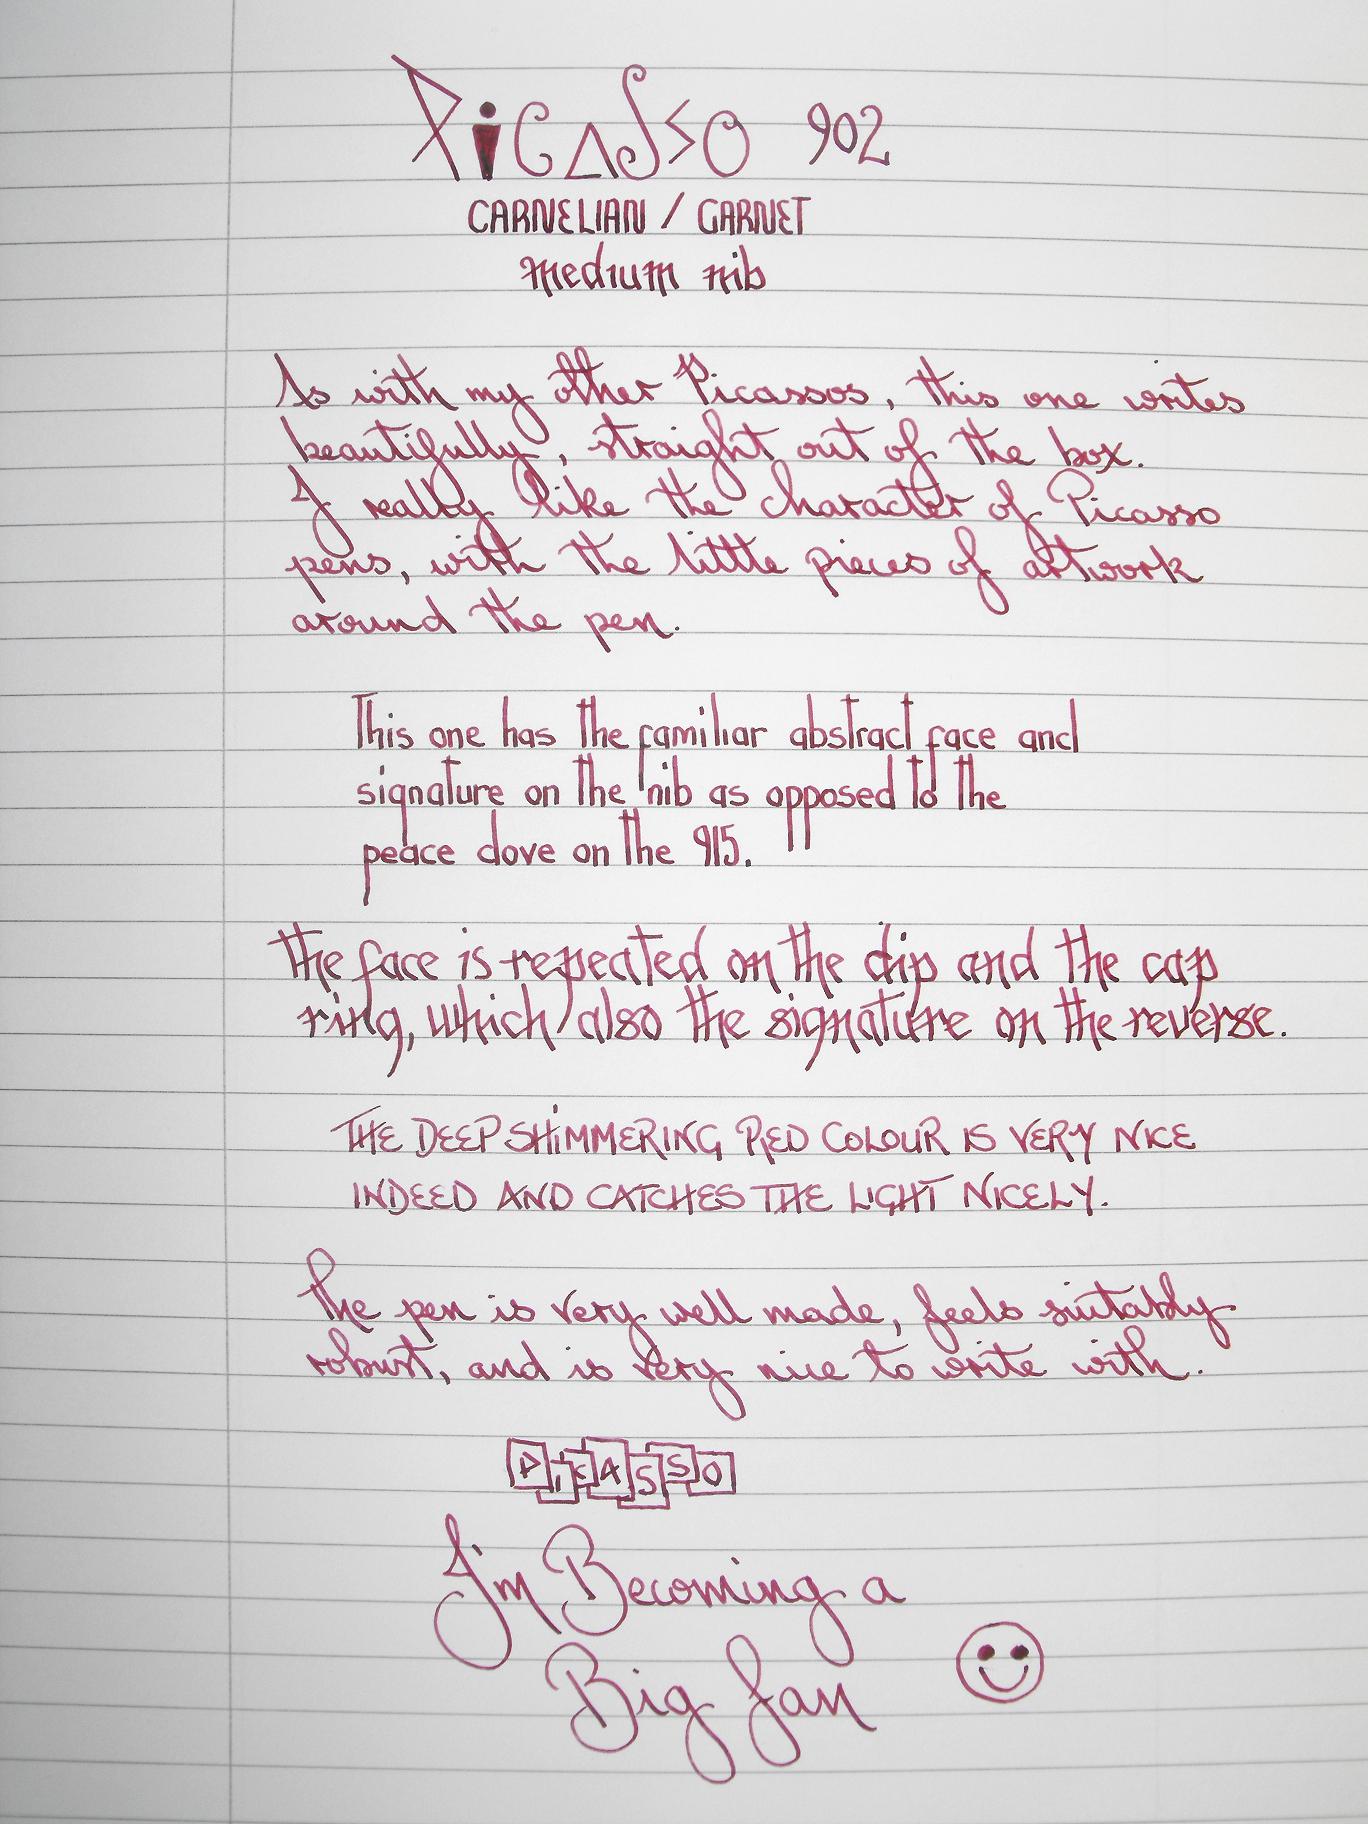 PiCASSO 902
CARNELIAN / GARNET
medium nib
As with my other Picassos, this one writes
beautifully, straight out of the box.
I really like the character of Picasso
pens, with the little pieces of artwork
around the pen.
This one has the familiar abstract face and
signature on the nib as opposed to the
peace dove on the 915.
the face is repeated on the clip and the cap
ring, which also the signature on the reverse.
THE DEEP SHiMMERING RED COLOUR IS VERY NICE
INDEED AND CATCHES THE LIGHT NICELY.
The pen is very well made, feels suitably
robust, and is very nice to write with.
PICASSO
I'm Becoming a
Big fan